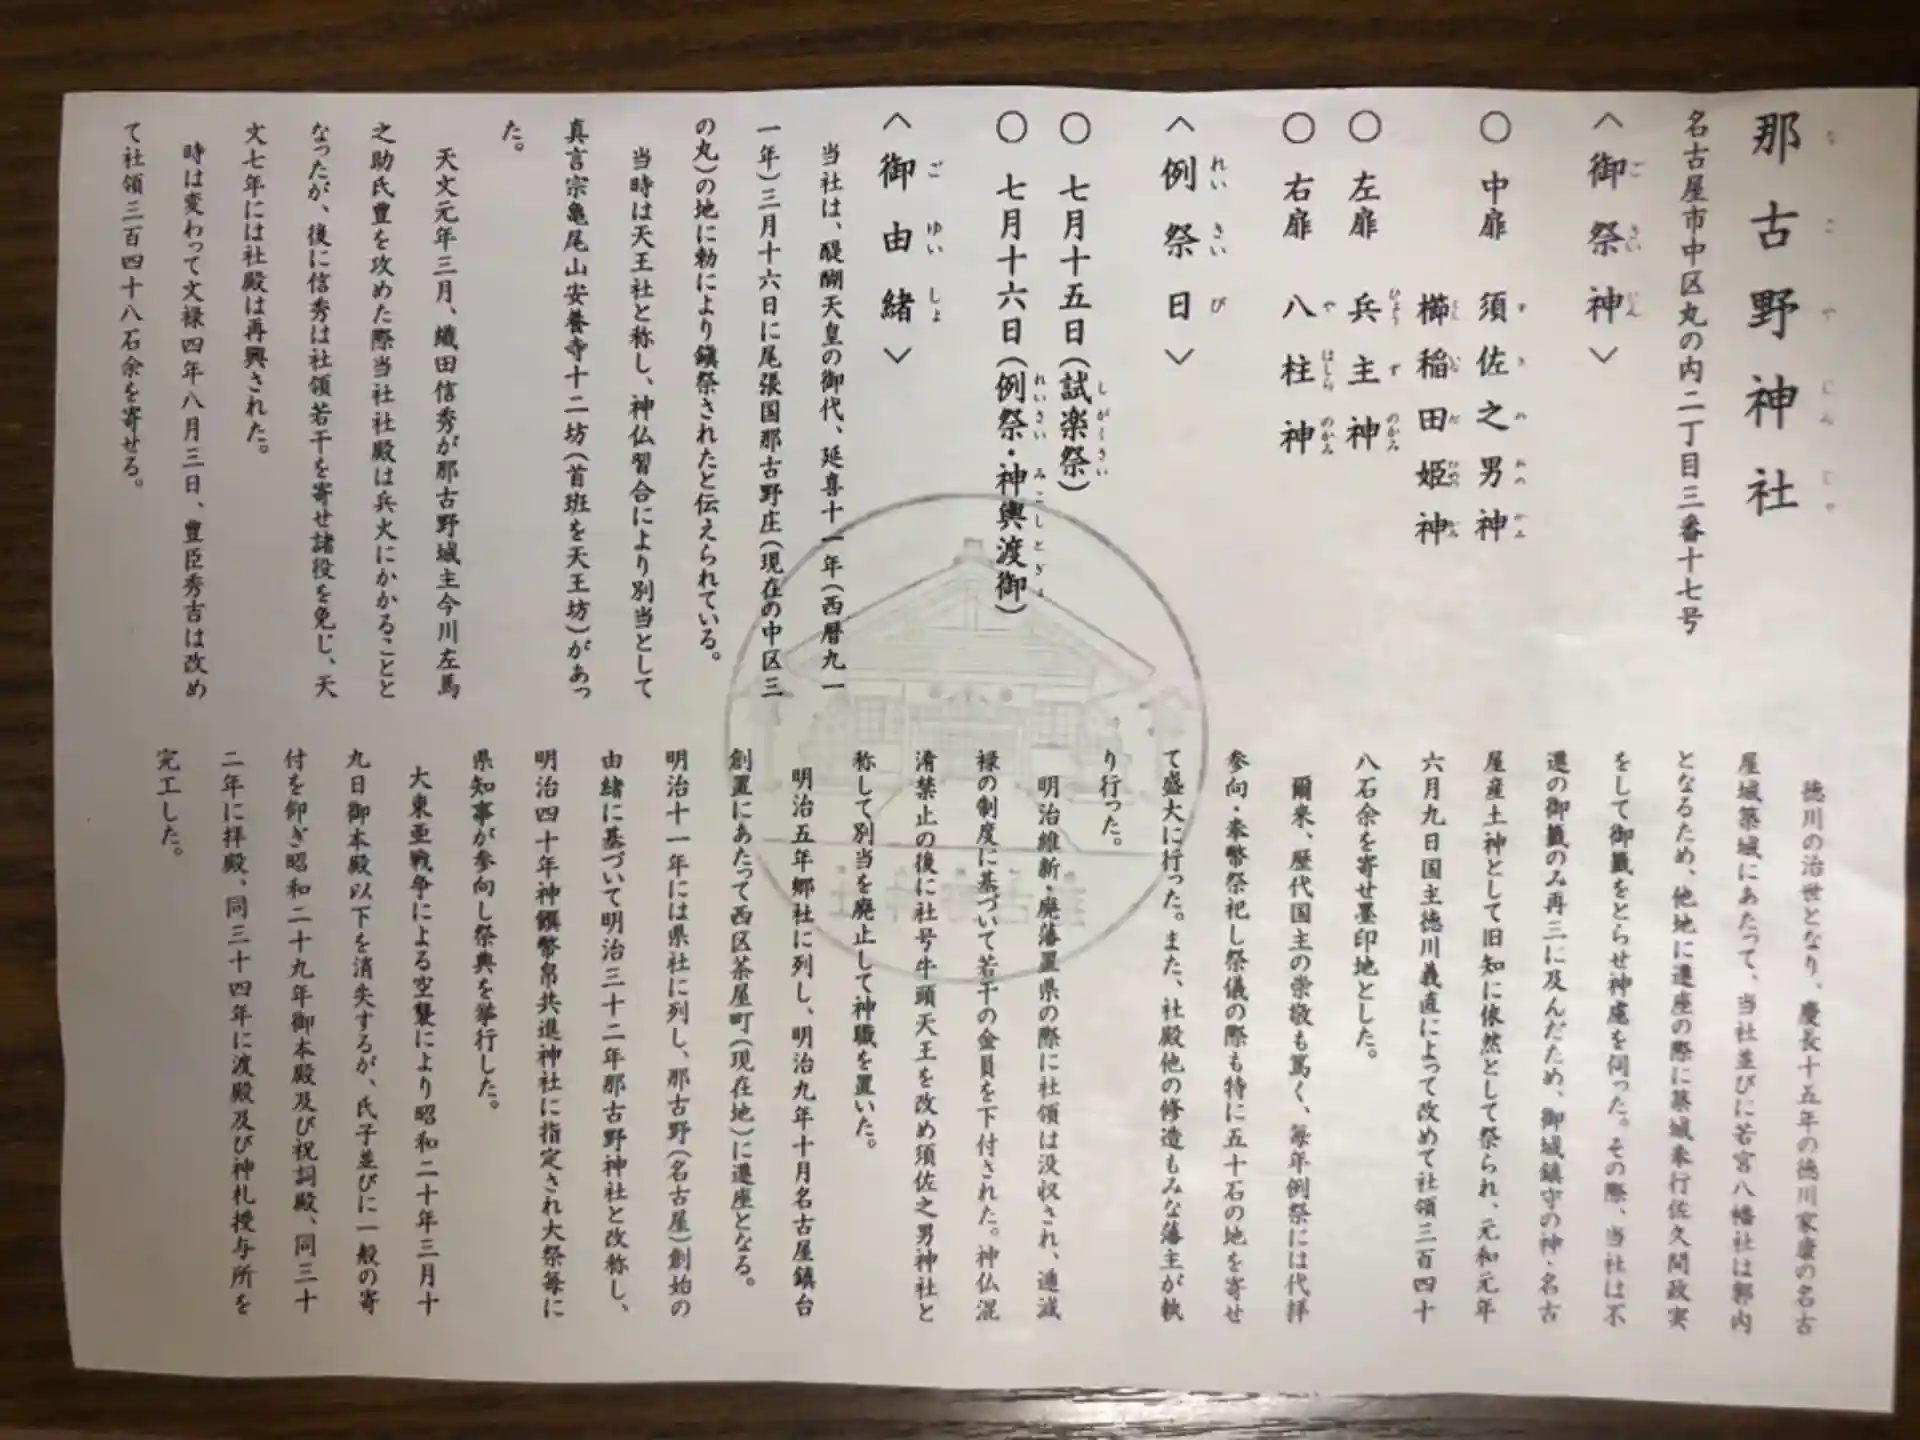 那古野神社
名古屋市中区丸の内二丁目三番十七号
〈御祭神〉
〇 中扉 須佐之男神
櫛稲田姫神
〇 左扉 兵主神
〇 右扉 八柱神
〈例祭日〉
〇 七月十五日(試楽祭)
〇 七月十六日(例祭・神輿渡御)
〈御由緒〉
当社は、醍醐天皇の御代、延喜十一年(西暦九一
一年)三月十六日に尾張国那古野庄(現在の中区三
の丸)の地に勅により鎮祭されたと伝えられている。
当時は天王社と称し、神仏習合により別当として
真言宗亀尾山安養寺十二坊(首班を天王坊)があっ
た。
天文元年三月、織田信秀が那古野城主今川左馬
之助氏豊を攻めた際当社社殿は兵火にかかることと
なったが、後に信秀は社領若干を寄せ諸役を免じ、天
文七年には社殿は再興された。
時は変わって文禄四年八月三日、豊臣秀吉は改め
て社領三百四十八石余を寄せる。
徳川の治世となり、慶長十五年の徳川家康の名古
屋城築城にあたって、当社並びに若宮八幡社は郭内
となるため、他地に遷座の際に築城奉行佐久間政実
をして御籤をとらせ神慮を伺った。その際、当社は不
遷の御籤のみ再三に及んだため、御城鎮守の神・名古
屋産土神として旧知に依然として祭られ、元和元年
六月九日国主徳川義直によって改めて社領三百四十
八石余を寄せ墨印地とした。
爾来、歴代国主の崇敬も篤く、毎年例祭には代拝
参向・奉幣祭祀し祭儀の際も特に五十石の地を寄せ
て盛大に行った。また、社殿他の修造もみな藩主が執
り行った。
明治維新・廃藩置県の際に社領は没収され、逓減
禄の制度に基づいて若干の金員を下付された。神仏混
淆禁止の後に社号牛頭天王を改め須佐之男神社と
称して別当を廃止して神職を置いた。
明治五年郷社に列し、明治九年十月名古屋鎮台
創置にあたって西区茶屋町(現在地)に遷座となる。
明治十一年には県社に列し、那古野(名古屋)創始の
由緒に基づいて明治三十二年那古野神社と改称し、
明治四十年神饌幣帛共進神社に指定され大祭毎に
県知事が参向し祭典を挙行した。
大東亜戦争による空襲により昭和二十年三月十
九日御本殿以下を消失するが、氏子並びに一般の寄
付を仰ぎ昭和二十九年御本殿及び祝詞殿、同三十
二年に拝殿、同三十四年に渡殿及び神札授与所を
完工した。